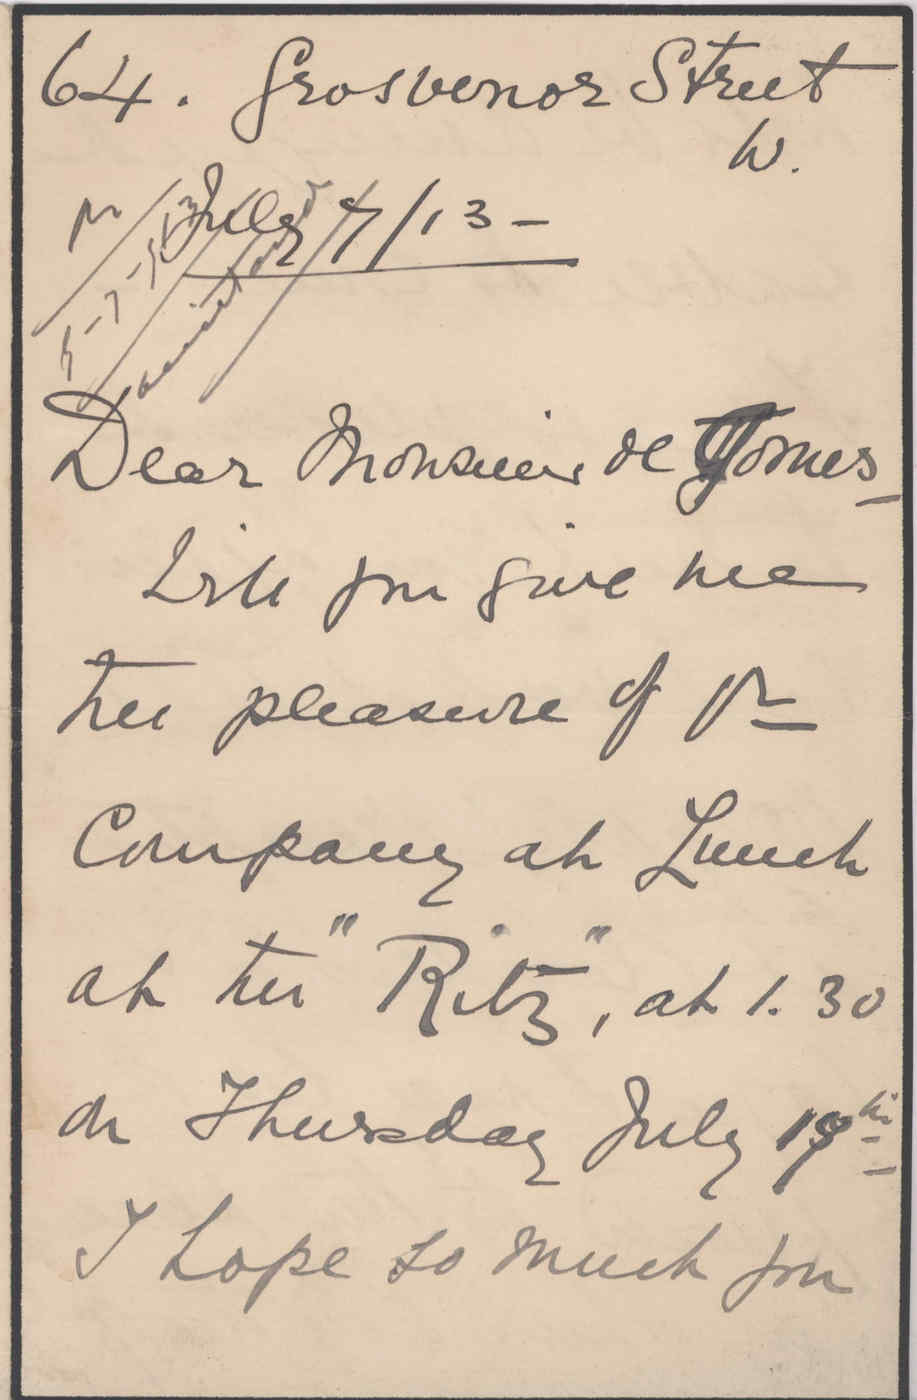 64. Grosvenor Street
W.
July 7/13 -
Dear Monsieur de
Will you give me
the pleasure of yr
Company at Lunch
at the "Ritz", at 1.30
on Thursday July 17th
I hope so much you